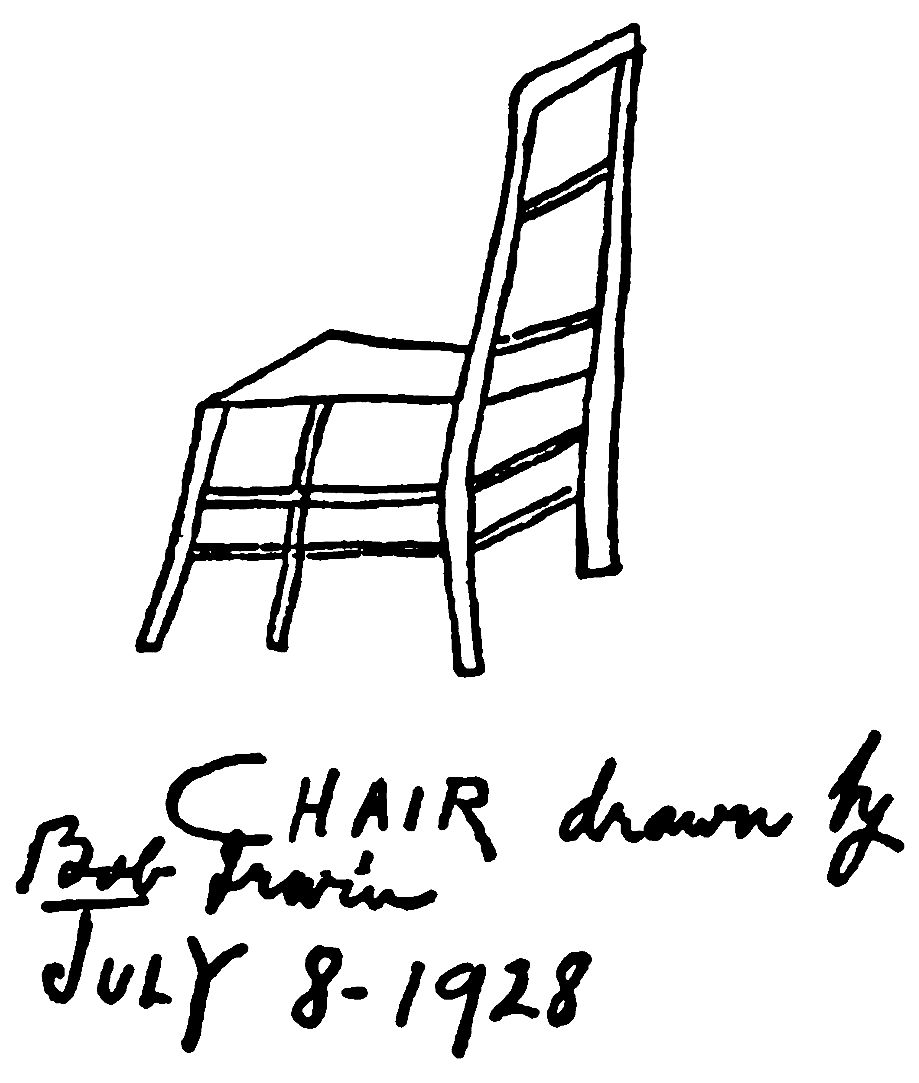 CHAIR drawn by
Bob Irwin
JULY 8-1928